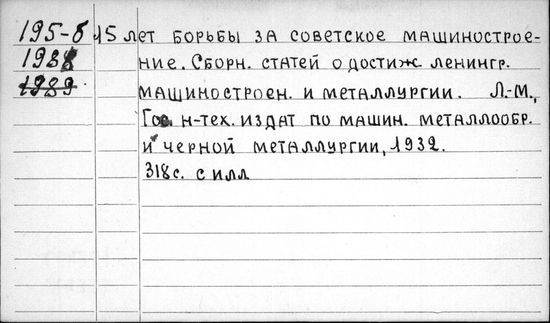 195-б 15 лет борьбы за советское машинострое-
1988 ние. Сборн. статей о достиж ленингр.
1989 машиностроен. и металлургии. Л.-М.,
Гос н-тех. издат по машин. металлообр.
и черной металлургии, 1932.
318с. с илл